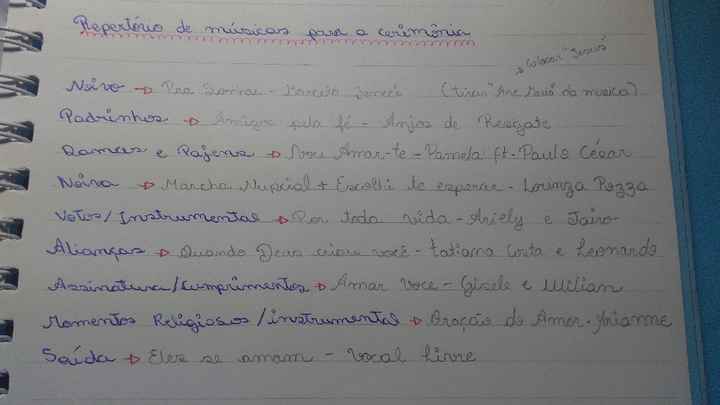 Repertório de músicas para a cerimônia
→ Colocar "Jesus"
Noivo → Pra Sonhar - Marcelo Jeneci (tirar "Ave Maria" da musica)
Padrinhos → Amigos pela fé - Anjos de Resgate
Damas e Pajens → Vou Amar-te - Pamela ft. Paulo César
Noiva → Marcha Nupcial + Escolhi te esperar - Lourenza Pozza
Votos/Instrumental → Por toda vida - Ariely e Jairo
Alianças → Quando Deus criou você - tatiana Costa e Leonardo
Assinatura/Cumprimentos → Amar você - Gisele e Willian
Momentos Religiosos/instrumental → Oração do Amor -
Saída → Eles se amam - Vocal Livre